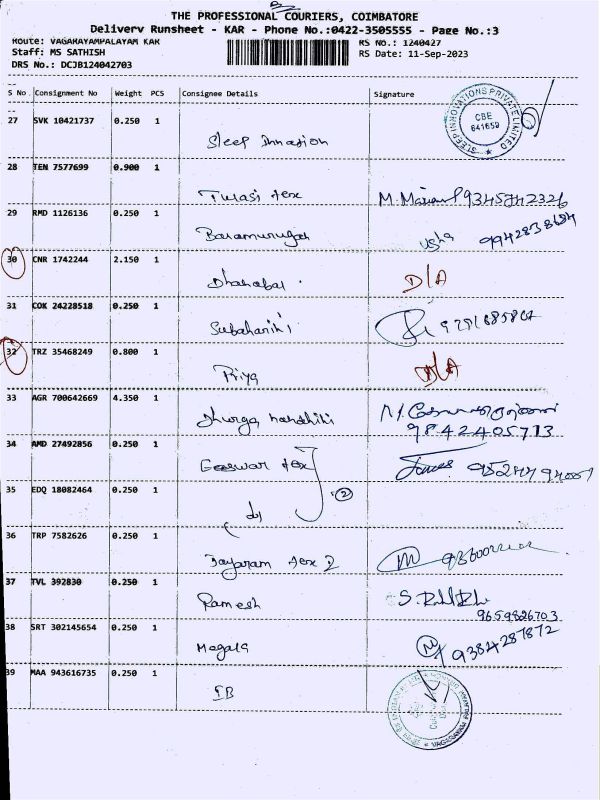 THE PROFESSIONAL COURIERS, COIMBATORE
Delivery Runsheet - KAR - Phone No.:0422-3505555 - Page No.:3
Route: VAGARAYAMPALAYAM KAR
RS No.: 1240427
Staff: MS SATHISH
RS Date: 11-Sep-2023
DRS No.: DCJB124042703
S No. Consignment No Weight PCS Consignee Details Signature
27 SVK 10421737 0.250 1
SLEEP INNOVATIONS PRIVATE LIMITED
CBE
641659
Sleep
28 TEN 7577699 0.900 1
Tulasi tex
29 RMD 1126136 0.250 1
Usha
30 CNR 1742244 2.150 1
Dhanabal
D/A
31 COK 24228518 0.250 1
Subaharihi
32 TRZ 35468249 0.800 1
Priya
D/A
33 AGR 700642669 4.350 1
Dhurga
9842405713
34 AMD 27492856 0.250 1
tex
35 EDQ 18082464 0.250 1
2
36 TRP 7582626 0.250 1
Jayaram tex
37 TVL 392830 0.250 1
Ramesh
9659826703
38 SRT 302145654 0.250 1
Megala
9384287872
39 MAA 943616735 0.250 1
IB